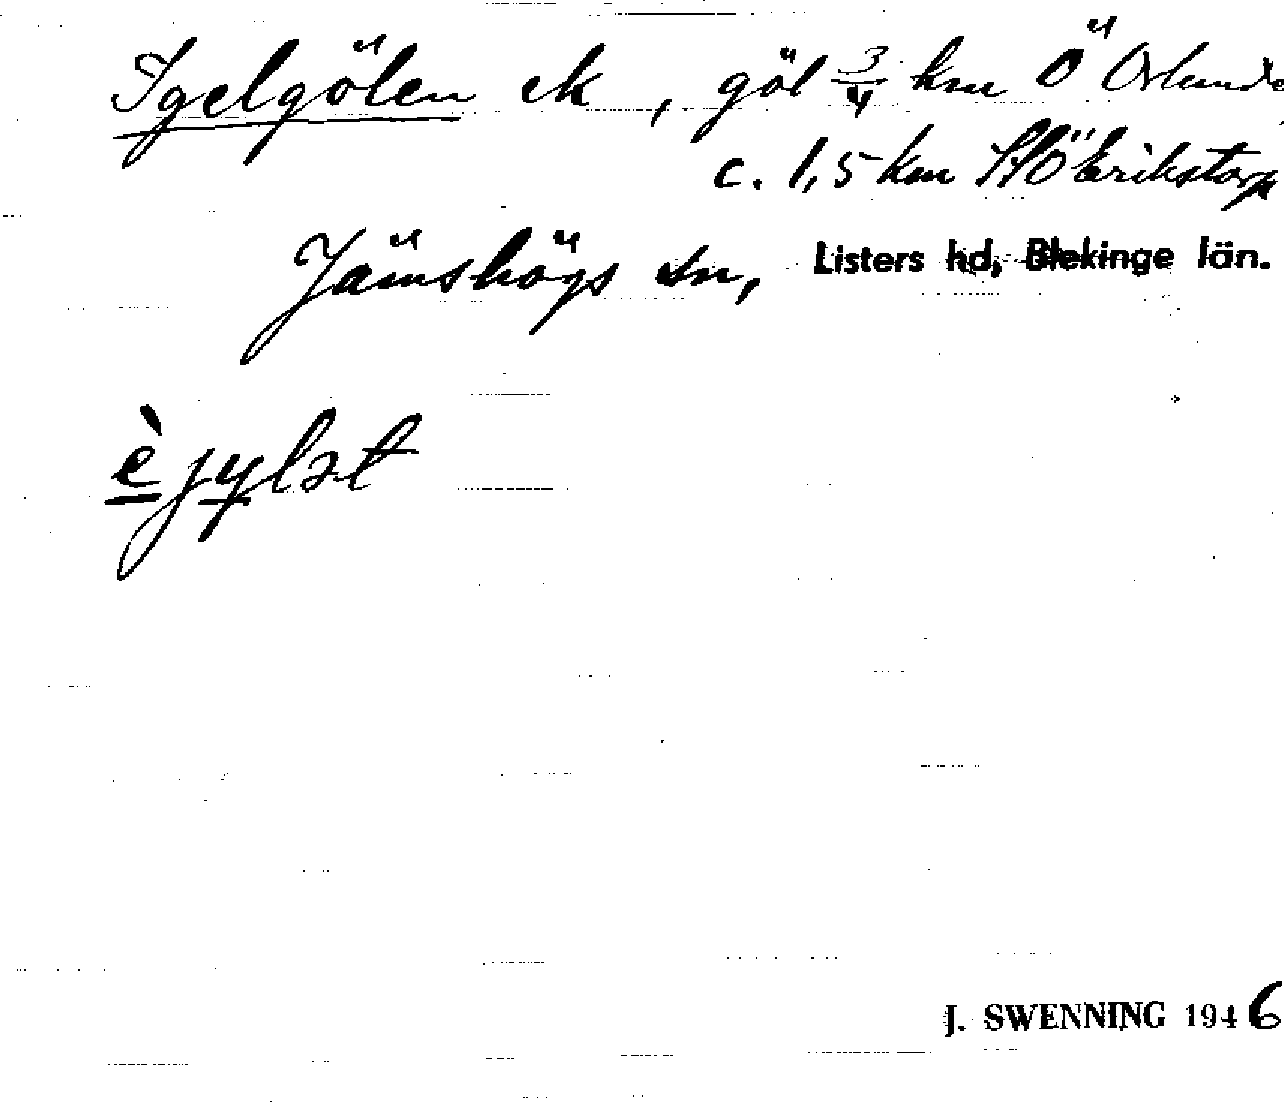 Igelgölen ek, göl 3/4 km Ö Örlunda
c. 1,5 km NÖ Erikstorp
Jämshögs sn, Listers hd, Blekinge län.
è jylət
J. SWENNING 1946